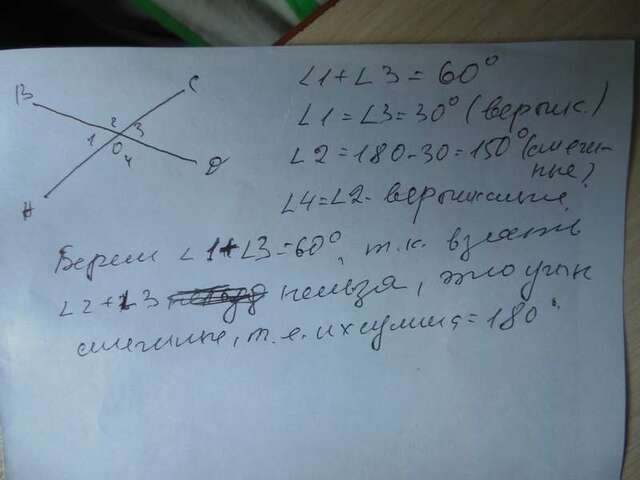 В
С
2
1
3
О
4
А
D
∠1+∠3=60°
∠1=∠3=30° (вертик.)
∠2=180-30=150° (смеж-
ные)
∠4=∠2 - вертикальные
Берем ∠1+∠3=60°, т.к. взять
∠2+∠3 нельзя, это углы
смежные, т.е. их сумма =180°.